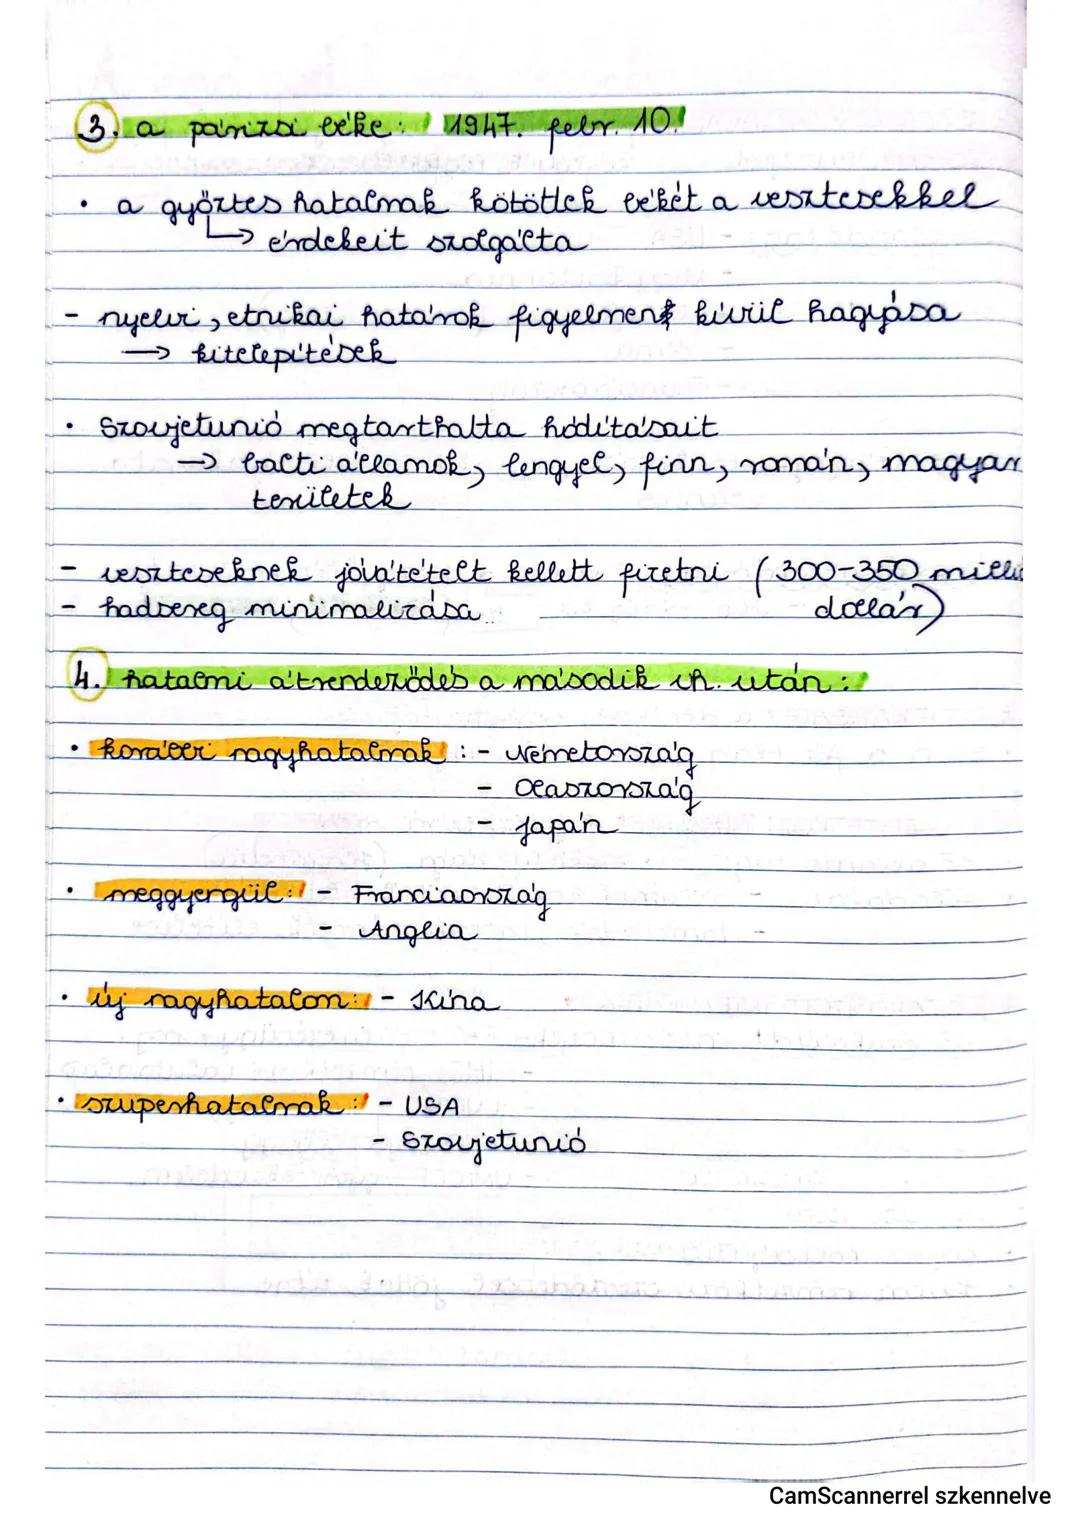 3. a párizsi béke: 1947. febr. 10.
• a győztes hatalmak kötöttek békét a vesztesekkel
→ érdekeit szolgálta
- nyelvi, etnikai határok figyelmen kívül hagyása
→ kitelepítések
• Szovjetunió megtarthatta hódításait
→ balti államok, lengyel, finn, román, magyar
területek
- veszteseknek jóvátételt kellett fizetni (300-350 millió
- hadsereg minimalizása dollár)
4. hatalmi átrendeződés a második vh. után:
• korábbi nagyhatalmak: - Németország
- Olaszország
- Japán
• meggyengül: - Franciaország
- Anglia
• új nagyhatalom: - Kína
• szuperhatalmak: - USA
- Szovjetunió
CamScannerrel szkennelve